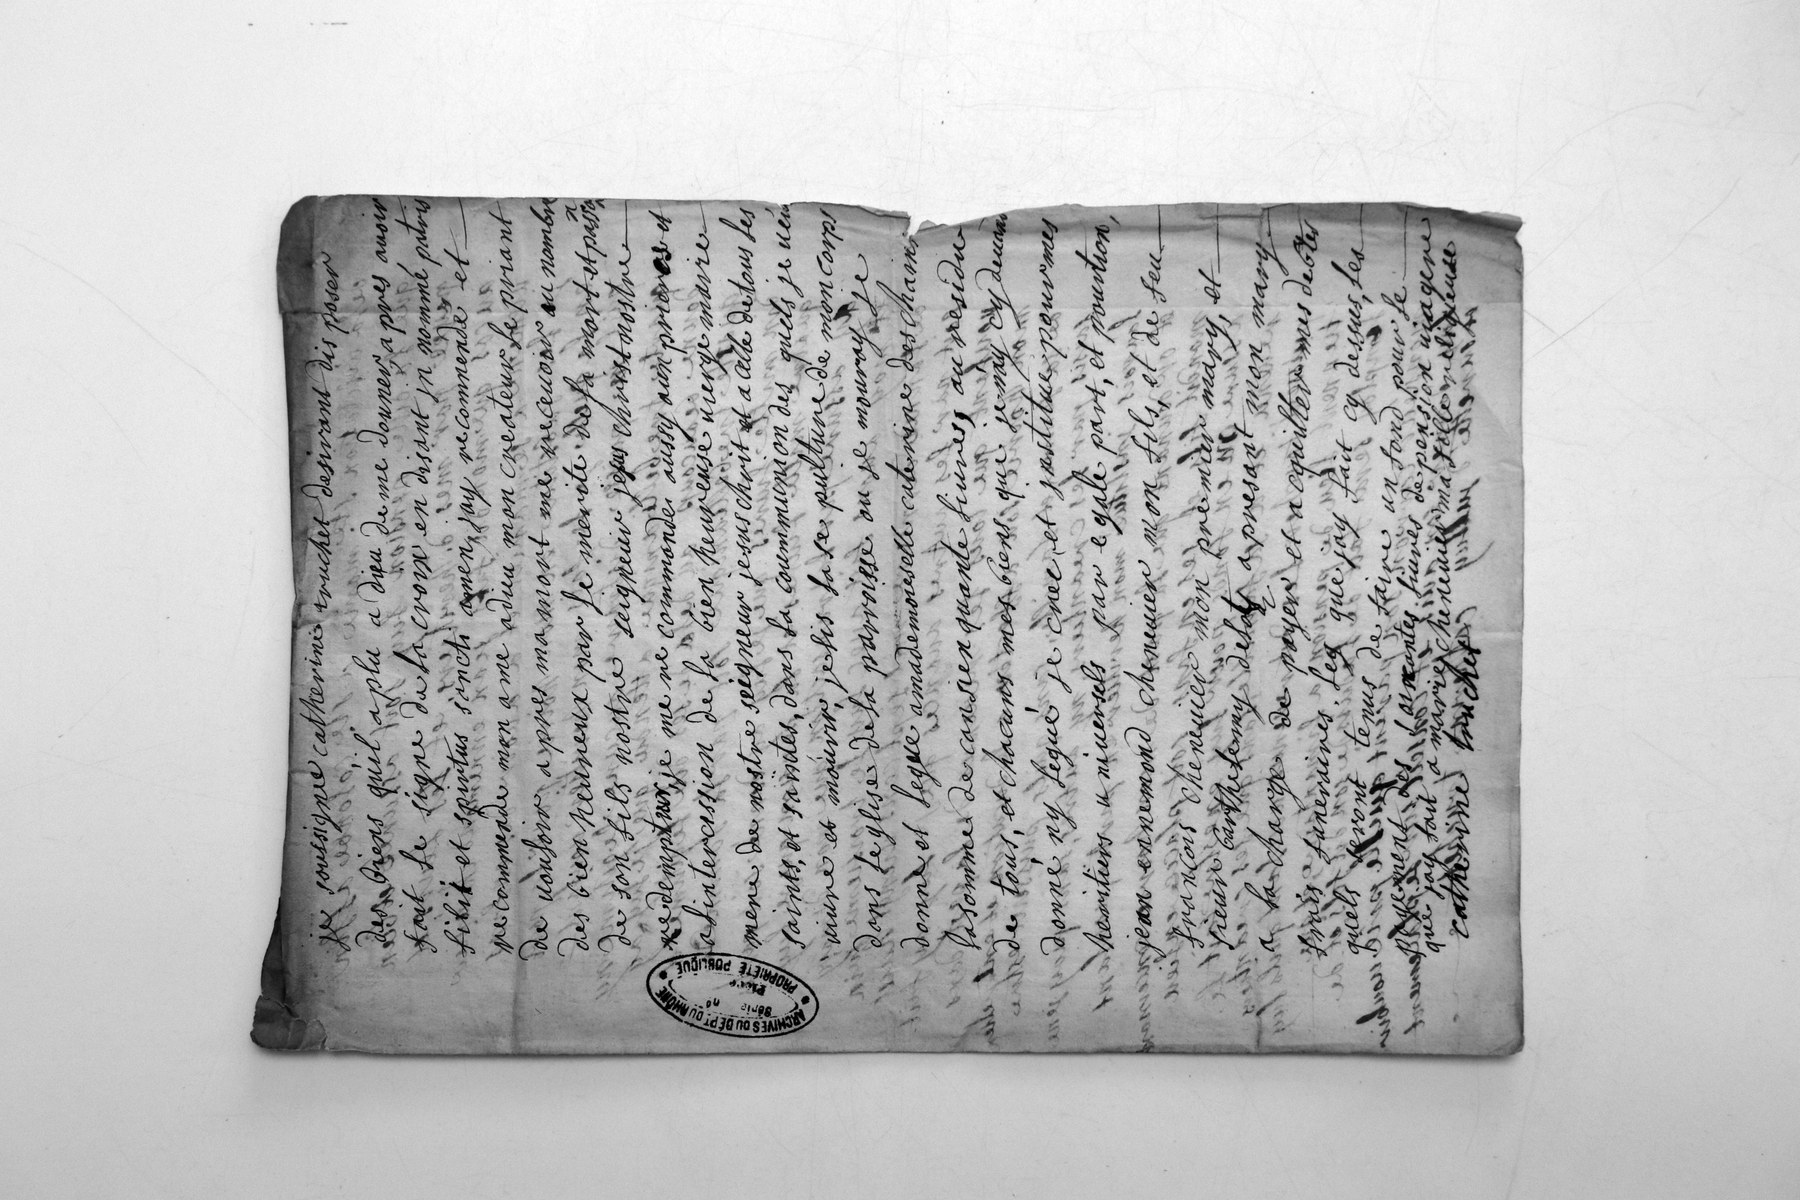 je soulsigne catherine truchet desirant dis poser
des biens quil a plu a dieu de me donner, a pres auoir
fait le signe de la croix en disant jn nomine patris
filii et spiritus sancti amen, jay recommende et
recommende mon ame a dieu mon createur le priant
de uouloir apres ma mort me receuoir au nombre
des bien heureux par le merite de la mort et passion
de son fils nostre seigneur jesus christ nostre
redempteur, je me commande aussy aux prieres et
a lintercession de la bien heureuse uierge marie
mere de nostre seigneur jesus christ et a celle de tous les
saints, et saintes, dans la communion des quels je ueux
uiure et mourir, jelis la se pulture de mon corps
dans leglise de la parroisse ou je mourray je
donne et legue a mademoiselle caterine deschamps
la somme de cent cinquante liures, au residu
de tous, et chacuns mes biens que je nay cy deuant
donné ny legué je crée et jnstitue pour mes
heritiers u niuersels par e gale part, et pourtion,
jean ennemond cheneuier mon fils, et de feu
françois cheneuier mon premier mary, et
sieur barthelemy a presant mon mary
a la charge de payer et a quitter mes debtes
frais funeraires, leg que jay fait cy dessus, les
quels seront tenus de faire un fond pour le
payement des liures de pension uiagere
que jay fait a marie cheneuier ma fille relligieuse
catherine truchet
ARCHIVES DU DÉPT DU RHÔNE
Série nº
Pièce
PROPRIÉTÉ PUBLIQUE